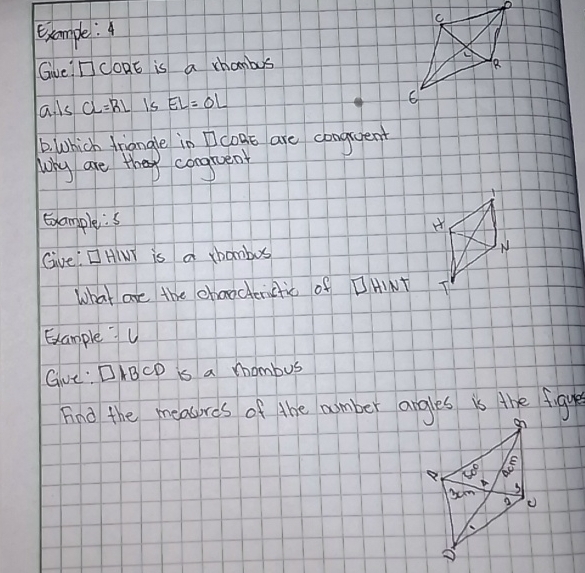 Example: 4
Give: □ CORE is a rhombus
a. Is CL=RL Is EL=OL
b. Which triangle in □ CORE are congruent
Why are they congruent
C
O
L
R
E
Example: 5
Give: □ HINT is a rhombus
What are the characteristic of □ HINT
H
I
N
T
Example: 6
Give: □ ABCD is a rhombus
Find the measures of the number angles is the figure
A
B
60°
3cm
4
3
2
C
1
D